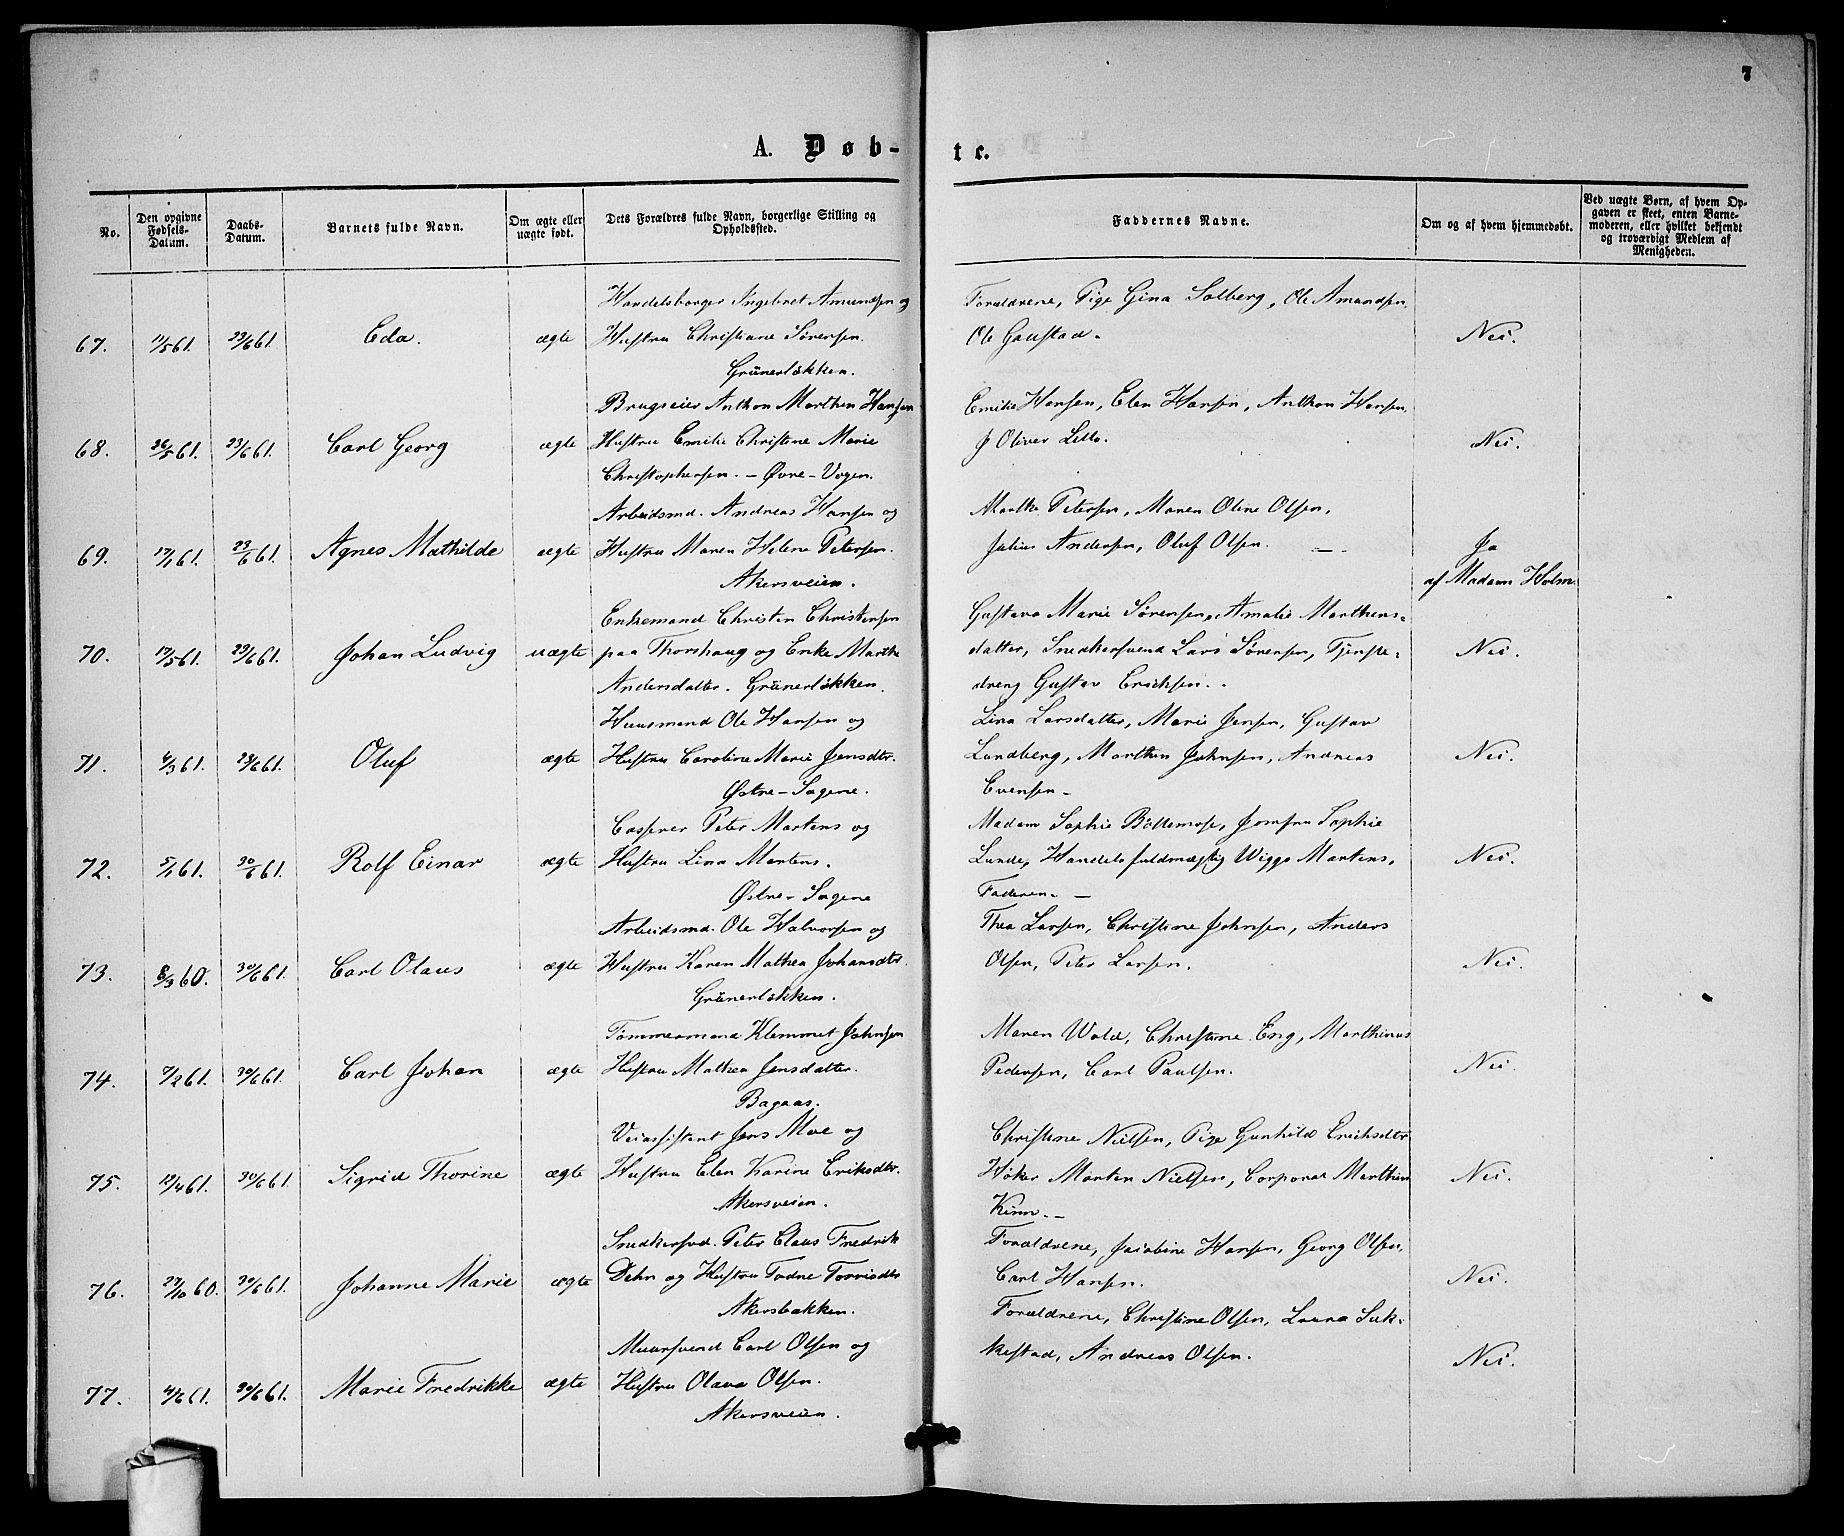 7
A. Døb-
te.
No.
Den opgivne Fødsels-Datum.
Daabs-Datum.
Barnets fulde Navn.
Om ægte eller uægte født.
Dets Forældres fulde Navn, borgerlige Stilling og Opholdssted.
Faddernes Navne.
Om og af hvem hjemmedøbt.
Ved uægte Børn, af hvem Opgaven er skeet, enten Barnemoderen, eller hvilket bekjendt og troværdigt Medlem af Menigheden.
Handelsborger Ingebret Amundsen og
Forældrene, Pige Gina Solberg, Ole Amundsen,
67. 11/5 61. 23/6 61. Eda. ægte Hustru Christiane Sørensen.
Ole Gaustad. Nei.
Grünerløkken.
Brugseier Anthon Marthin Hansen
Emilie Hansen, Elen Hansen, Anthon Hansen,
68. 26/5 61. 23/6 61. Carl Georg ægte Hustru Emilie Christine Marie
J Oliver Lello. Nei.
Christophersen. - Øvre-Vogen.
Arbeidsmd. Andreas Hansen og
Marthe Petersen, Maren Oline Olsen,
69. 17/1 61. 23/6 61. Agnes Mathilde ægte Hustru Maren Helene Petersen.
Julius Andersen, Oluf Olsen. Ja
Akersveien.
af Madam Holm.
Enkemand Christen Christensen
Gustava Marie Sørensen, Amalie Marthins-
70. 17/5 61. 23/6 61. Johan Ludvig uægte paa Thorshaug og Enke Marthe
datter, Snedkersvend Lars Sørensen, Tjeneste- Nei.
Andersdatter. Grünerløkken.
dreng Gustav Erichsen.
Huusmand Ole Hansen og
Lina Larsdatter, Marie Jensen, Gustav
71. 4/3 61. 23/6 61. Oluf ægte Hustru Caroline Marie Jensdtr.
Lundberg, Marthin Johnsen, Andreas Nei.
Østre-Sagene.
Evensen -
Casserer Peter Martens og
Madam Sophie Boltemose, Jomfru Sophie
72. 5/1 61. 30/6 61. Rolf Einar ægte Hustru Lina Martens.
Lunde, Handelsfuldmægtig Wiggo Martens, Nei.
Østre-Sagene
Faderen. -
Arbeidsmd. Ole Halvorsen og
Thea Larsen, Christine Johnsen, Anders
73. 8/3 60. 30/6 61. Carl Olaus ægte Hustru Karen Mathea Johansdtr.
Olsen, Peter Larsen. Nei.
Grünerløkken.
Tømmermand Klemmet Johnsen
Maren Wold, Christine Eng, Marthinus
74. 7/2 61. 30/6 61. Carl Johan ægte Hustru Mathea Jensdatter.
Pedersen, Carl Paulsen. Nei.
Bagaas.
Veiassistent Jens Moe og
Christine Nielsen, Pige Gunhild Erichsdtr
75. 12/4 61. 30/6 61. Sigrid Thorine ægte Hustru Elen Karine Eriksdtr.
Høker Morten Nielsen, Corporal Marthin Nei.
Akersveien.
Kinn. -
Snedkersvd. Peter Claus Fredrik
Forældrene, Jacobine Hansen, Georg Olsen,
76. 27/10 60. 30/6 61. Johanne Marie ægte Dehn og Hustru Todne Torrisdtr
Carl Hansen. Nei.
Akersbakken.
Forældrene, Christine Olsen, Laura Suk-
Muursvend Carl Olsen og
kestad, Andreas Olsen. Nei.
77. 4/6 61. 30/6 61. Marie Fredrikke ægte Hustru Olava Olsen.
Akersveien.